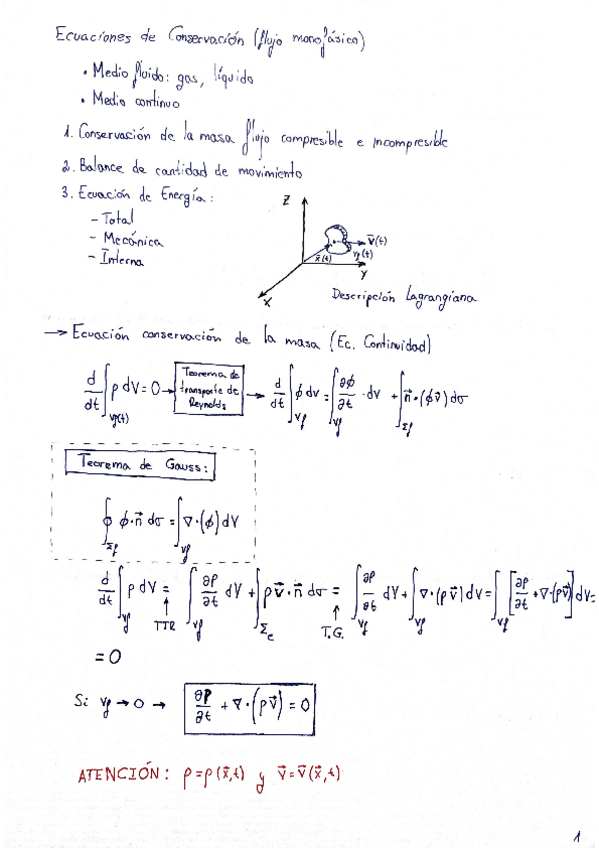 Ecuaciones de Conservación (flujo monofásico)
• Medio fluido: gas, líquido
• Medio continuo
1. Conservación de la masa flujo compresible e incompresible
2. Balance de cantidad de movimiento
3. Ecuación de Energía:
- Total
- Mecánica
- Interna
Z
V⃗(t)
x⃗(t) Vf(t)
Y
X
Descripción Lagrangiana
→ Ecuación conservación de la masa (Ec. Continuidad)
d/dt ∫_Vf(t) ρ dV = 0 → Teorema de transporte de Reynolds → d/dt ∫_Vf ϕ dv = ∫_Vf ∂ϕ/∂t · dV + ∫_Σf n⃗·(ϕv⃗) dσ
Teorema de Gauss:
∮_Σf ϕ·n⃗ dσ = ∫_Vf ∇·(ϕ) dV
d/dt ∫_Vf ρ dV = ∫_Vf ∂ρ/∂t dV + ∫_Σc ρv⃗·n⃗ dσ = ∫_Vf ∂ρ/∂t dV + ∫_Vf ∇·(ρv⃗) dV = ∫_Vf [∂ρ/∂t + ∇·(ρv⃗)] dV =
↑ TTR ↑ T.G.
= 0
Si Vf → 0 → ∂ρ/∂t + ∇·(ρv⃗) = 0
ATENCIÓN: ρ=ρ(x⃗,t) y v⃗=v⃗(x⃗,t)
1